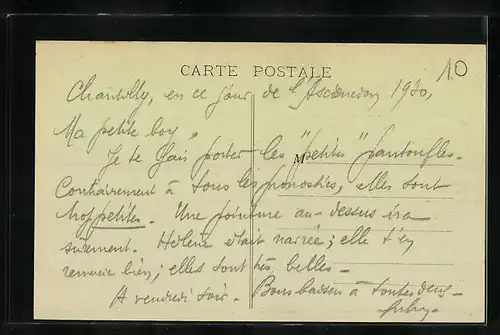 10
CARTE POSTALE
Chantilly, en ce jour de l'Ascension 1930,
Ma petite boy,
Je te fais porter les "petites" pantoufles.
M
Contrairement à tous les pronostics, elles sont
trop petites. Une pointure au-dessus ira
sûrement. Hélène était navrée; elle t'en
remercie bien; elles sont très belles.
A vendredi soir. Bons baisers à toutes deux.